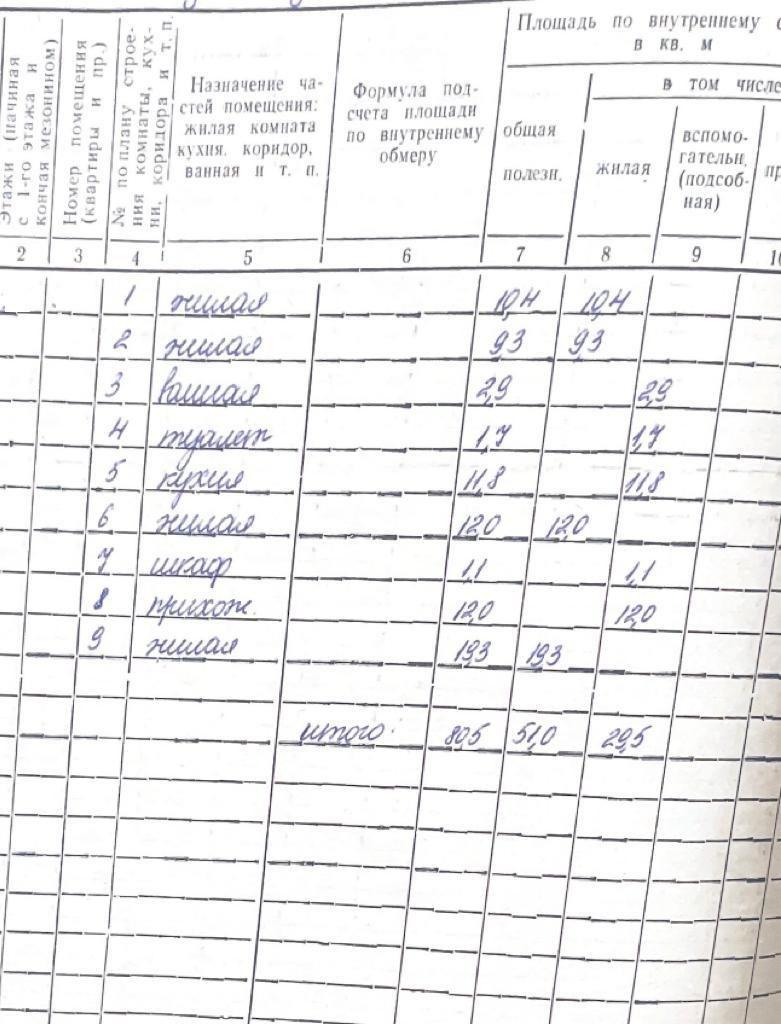 Этажи (начиная с 1-го этажа и кончая мезонином)
Номер помещения (квартиры и пр.)
№ по плану строения комнаты, кухни, коридора и т. п.
Назначение ча-
стей помещения:
жилая комната
кухня, коридор,
ванная и т. п.
Формула под-
счета площади
по внутреннему
обмеру
Площадь по внутреннему
в кв. м
в том числе
общая
полезн.
жилая
вспомо-
гательн.
(подсоб-
ная)
пр
2 3 4 5 6 7 8 9 10
1 жилая 10,4 10,4
2 жилая 9,3 9,3
3 ванная 2,9 2,9
4 туалет 1,7 1,7
5 кухня 11,8 11,8
6 жилая 12,0 12,0
7 шкаф 1,1 1,1
8 прихож. 12,0 12,0
9 жилая 19,3 19,3
итого: 80,5 51,0 29,5